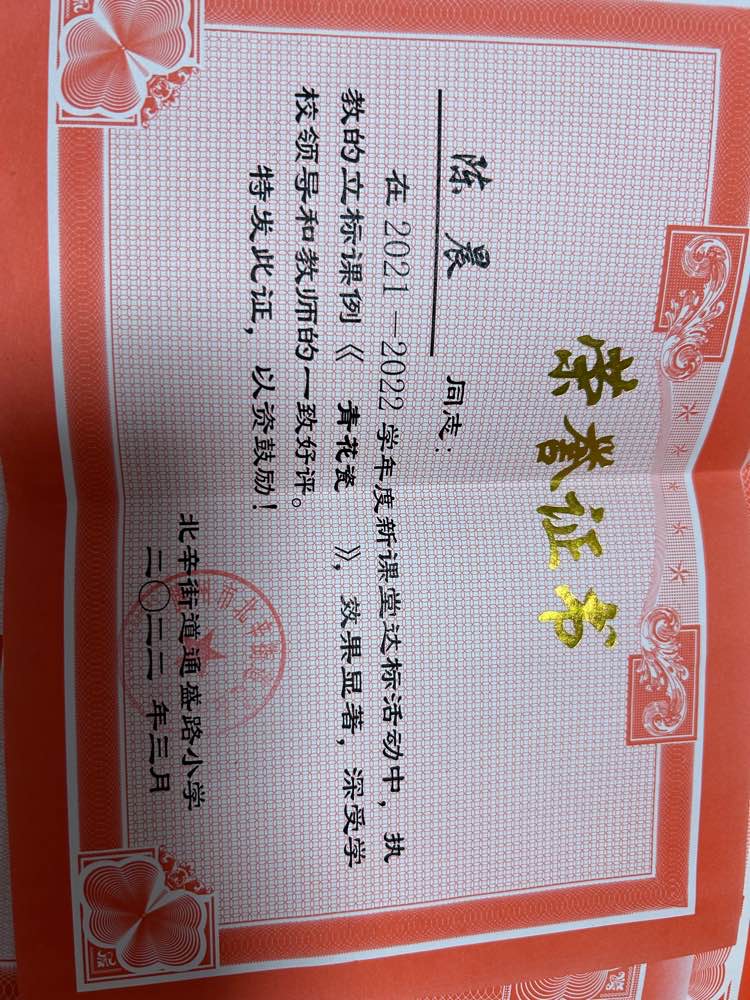 荣誉证书
陈晨 同志：
在2021－2022学年度新课堂达标活动中，执
教的立标课例《 青花瓷 》，效果显著，深受学
校领导和教师的一致好评。
特发此证，以资鼓励！
北辛街道通盛路小学
二〇二二年三月
市北辛街道